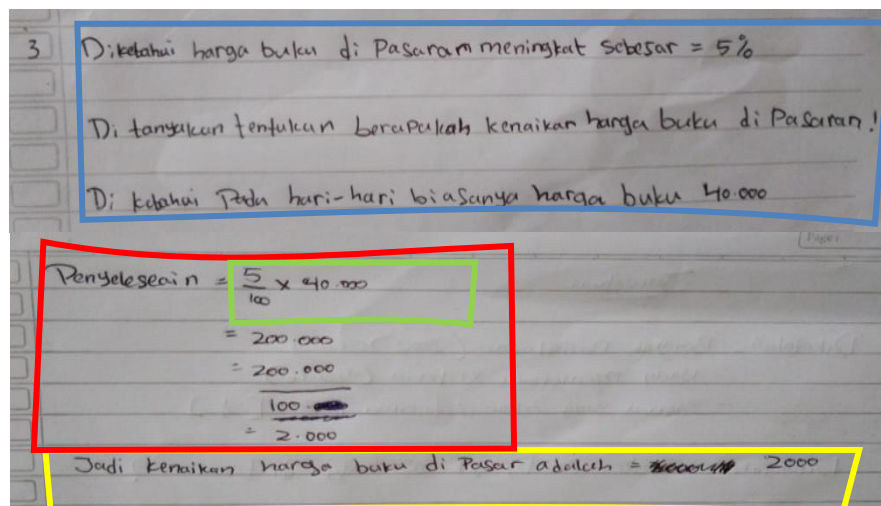 3 Diketahui harga buku di Pasaram meningkat sebesar = 5%
Di tanyakan tentukan berapakah kenaikan harga buku di Pasaran!
Di ketahui Pada hari-hari biasanya harga buku 40.000
Page:
Penyeleseain = 5/100 x 40.000
= 200.000
= 200.000
100.
= 2.000
Jadi kenaikan harga buku di Pasar adalah = 2000